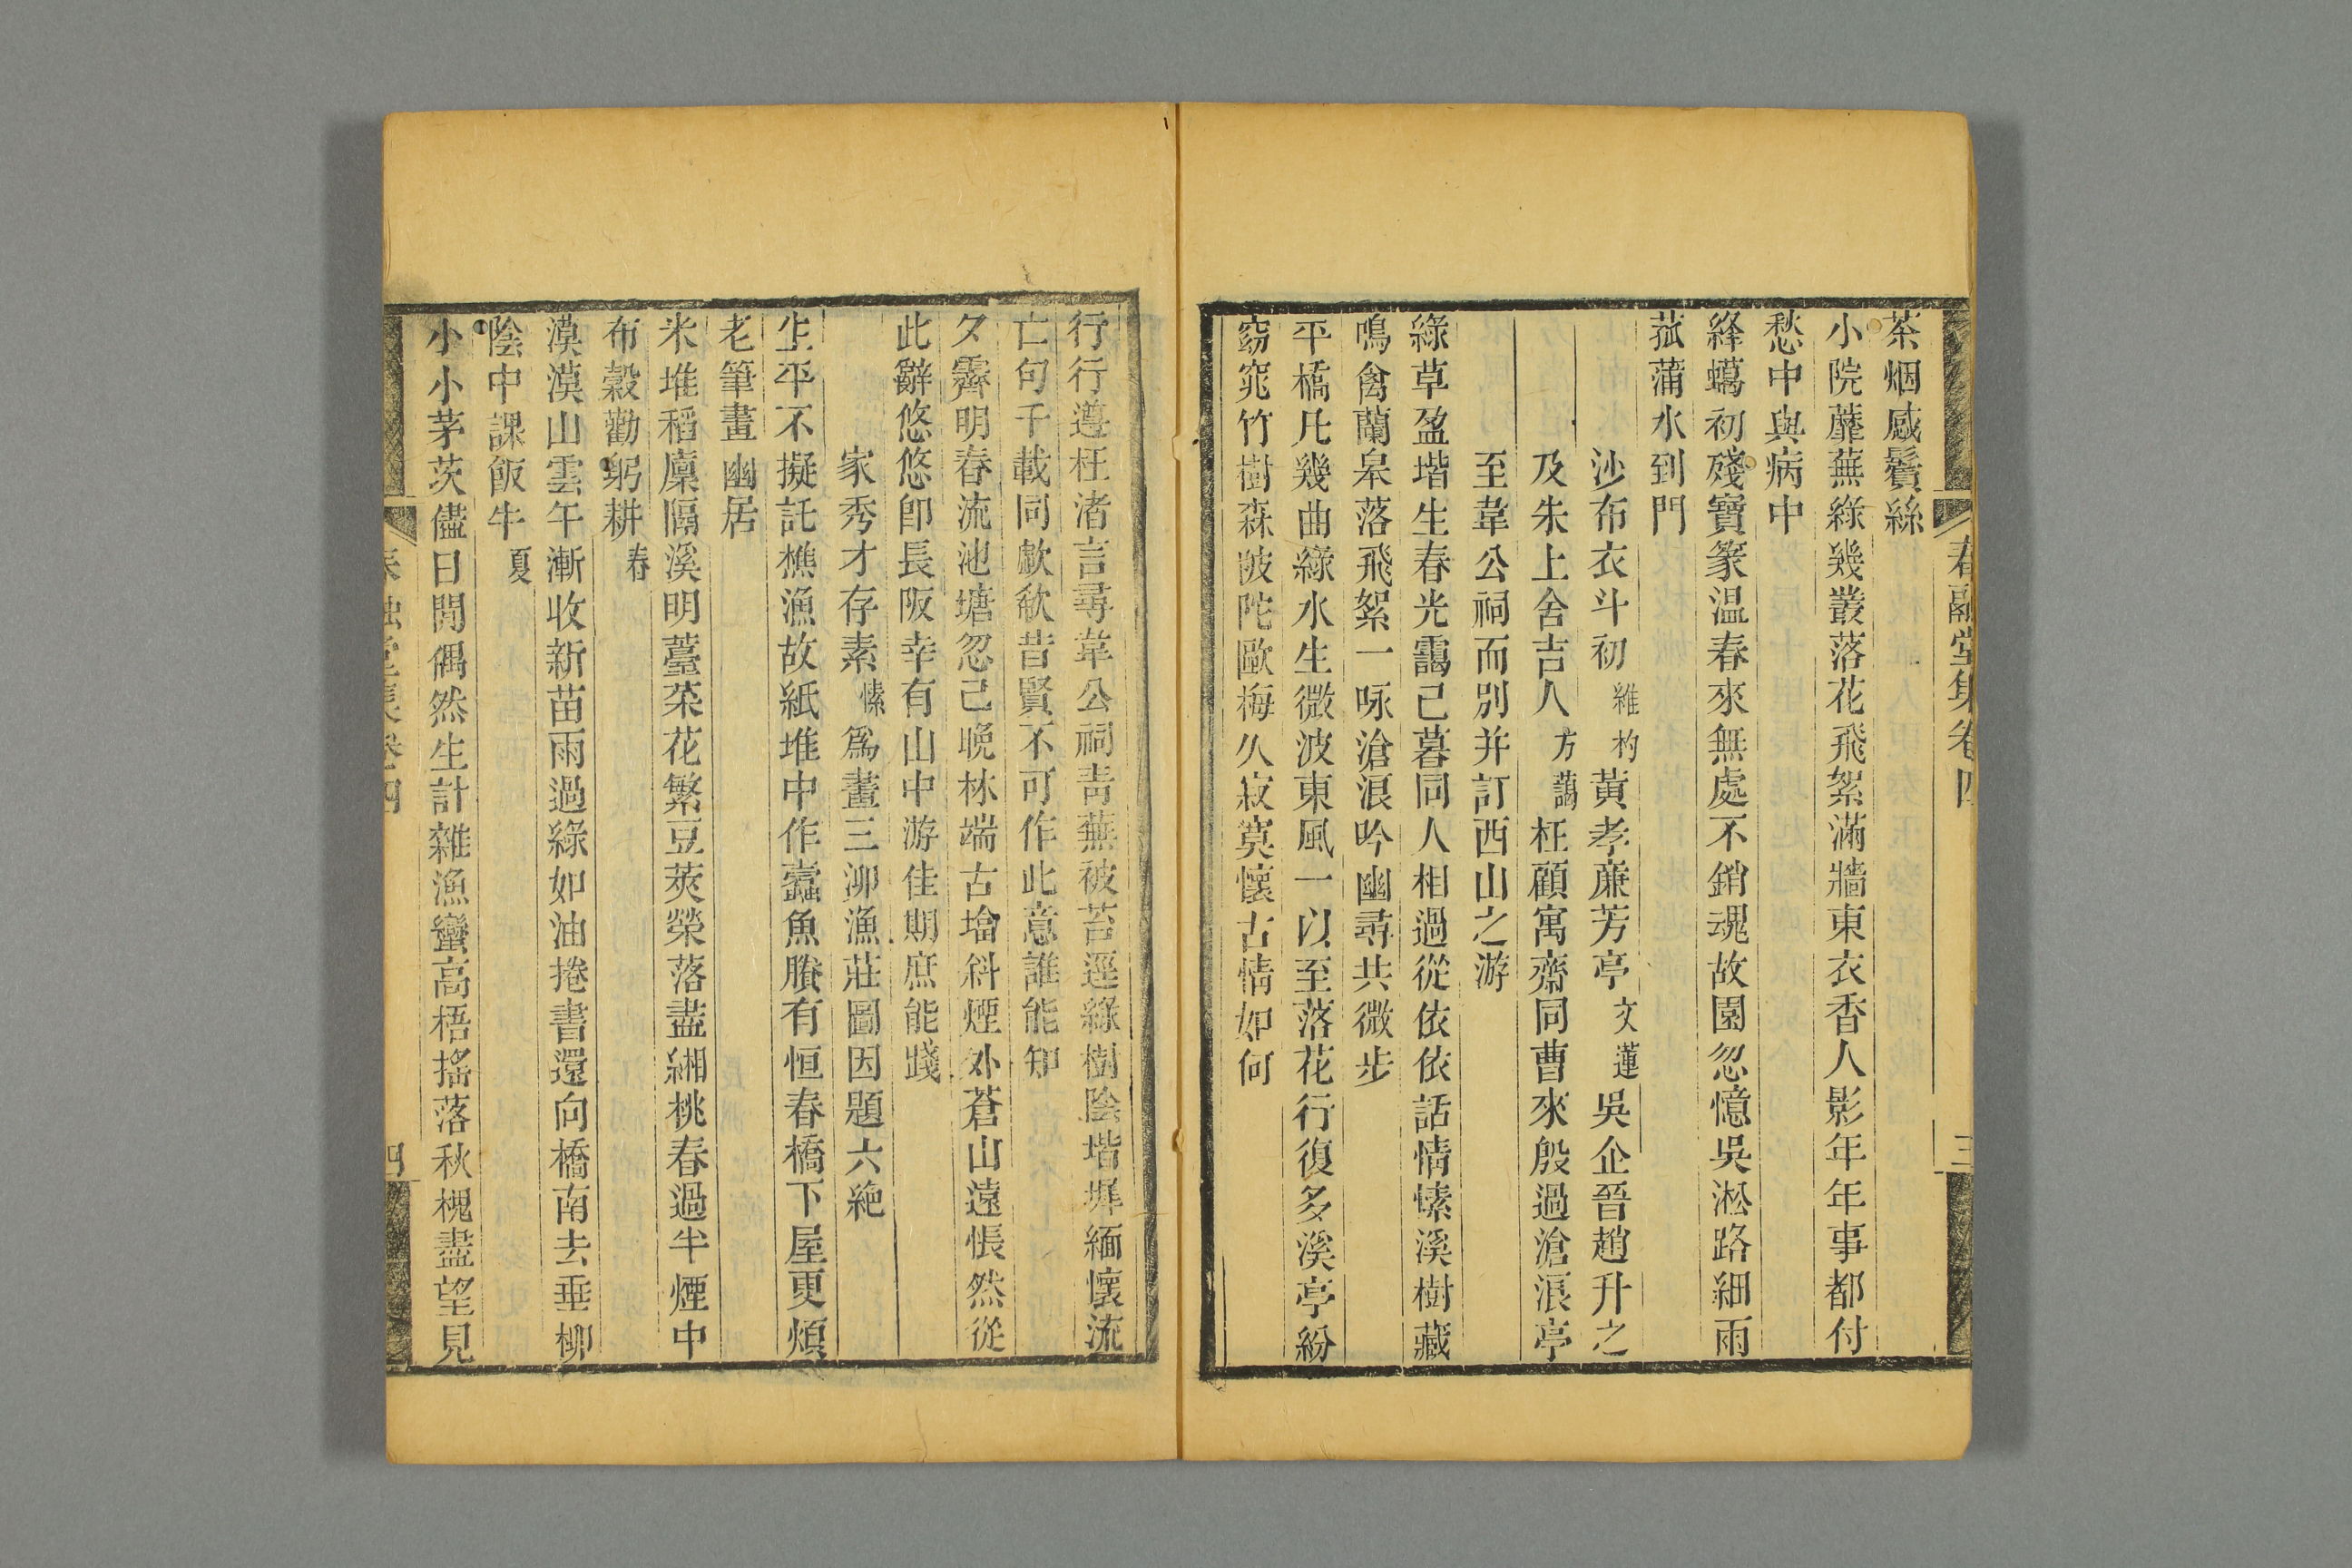 春融堂集卷四
三
茶烟感鬢絲
小院蘼蕪綠幾叢落花飛絮滿牆東衣香人影年年事都付
愁中與病中
絳蠟初殘寶篆温春來無處不銷魂故園忽憶吳淞路細雨
菰蒲水到門
沙布衣斗初維杓黃孝廉芳亭文蓮吳企晉趙升之
及朱上舍吉人方藹枉顧寓齋同曹來殷過滄浪亭
至韋公祠而別并訂西山之游
綠草盈堦生春光靄已暮同人相過從依依話情愫溪樹藏
鳴禽蘭皋落飛絮一咏滄浪吟幽尋共微步
平橋凡幾曲綠水生微波東風一以至落花行復多溪亭紛
窈窕竹樹森陂陀歐梅久寂寞懷古情如何
行行遵枉渚言尋韋公祠靑蕪被苔逕綠樹陰堦墀緬懷流
亡句千載同歔欷昔賢不可作此意誰能知
夕霽明春流池塘忽已晚林端古墖斜煙外蒼山遠悵然從
此辭悠悠卽長阪幸有山中游佳期庶能踐
家秀才存素愫爲畫三泖漁莊圖因題六絕
生平不擬託樵漁故紙堆中作蠹魚賸有恒春橋下屋更煩
老筆畫幽居
米堆稻廩隔溪明薹菜花繁豆莢榮落盡緗桃春過半煙中
布榖勸躬耕春
漠漠山雲午漸收新苗雨過綠如油捲書還向橋南去垂柳
陰中課飯牛夏
小小茅茨儘日閒偶然生計雜漁蠻高梧搖落秋槐盡望見
春融堂集卷四
四